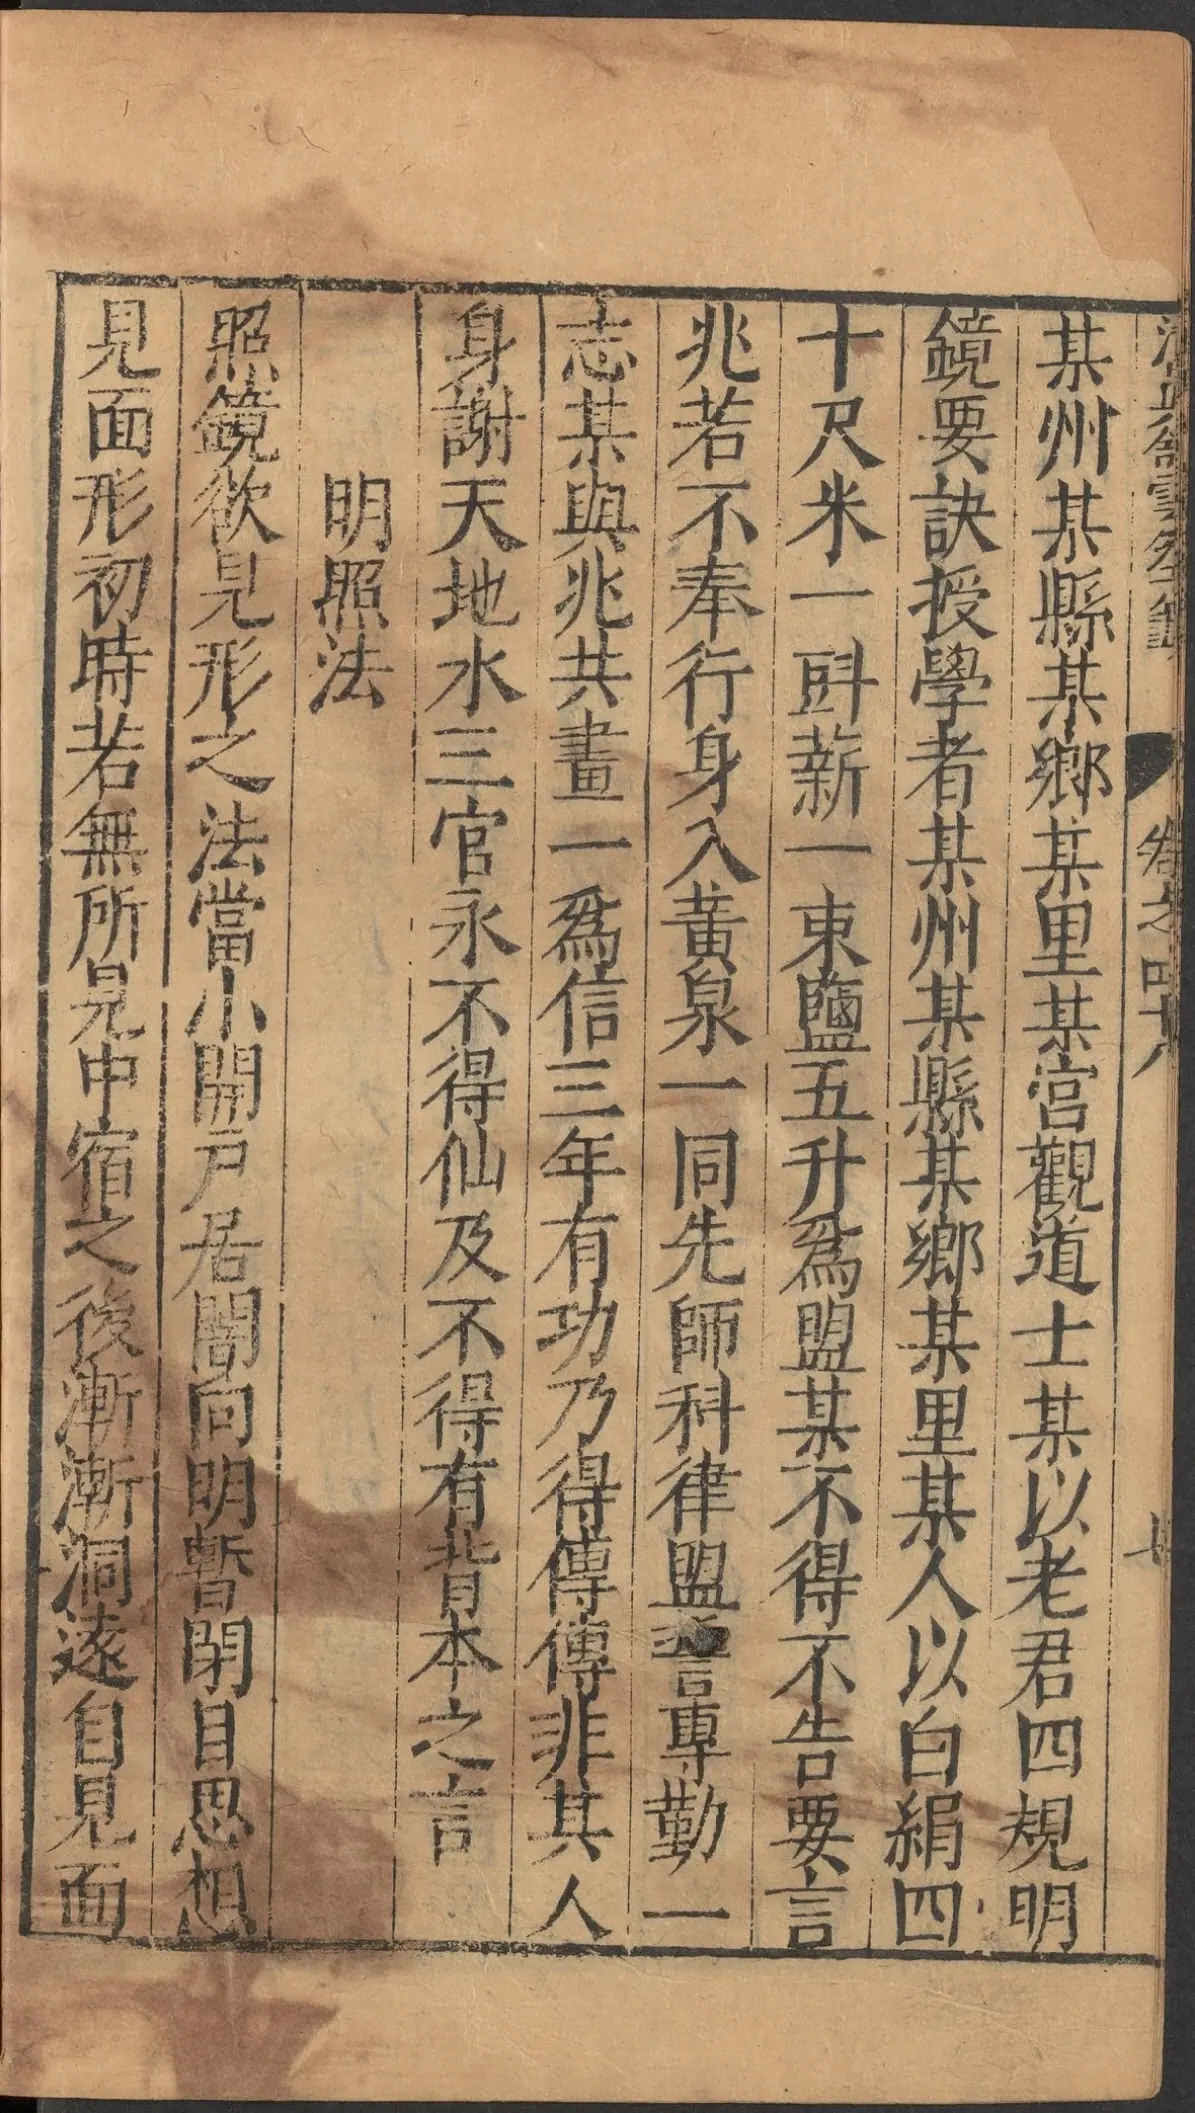 卷之四十八
某州某縣某鄉某里某宮觀道士某以老君四規明
鏡要訣授學者某州某縣某鄉某里某人以白絹四
十尺米一㪷薪一束鹽五升爲盟某不得不告要言
兆若不奉行身入黃泉一同先師科律盟誓專勤一
志某與兆共畫一爲信三年有功乃得傳傳非其人
身謝天地水三官永不得仙及不得有背本之言
明照法
照鏡欲見形之法當小開戶居闇向明暫閉目思想
見面形初時若無所見中宿之後漸漸洞遠自見面